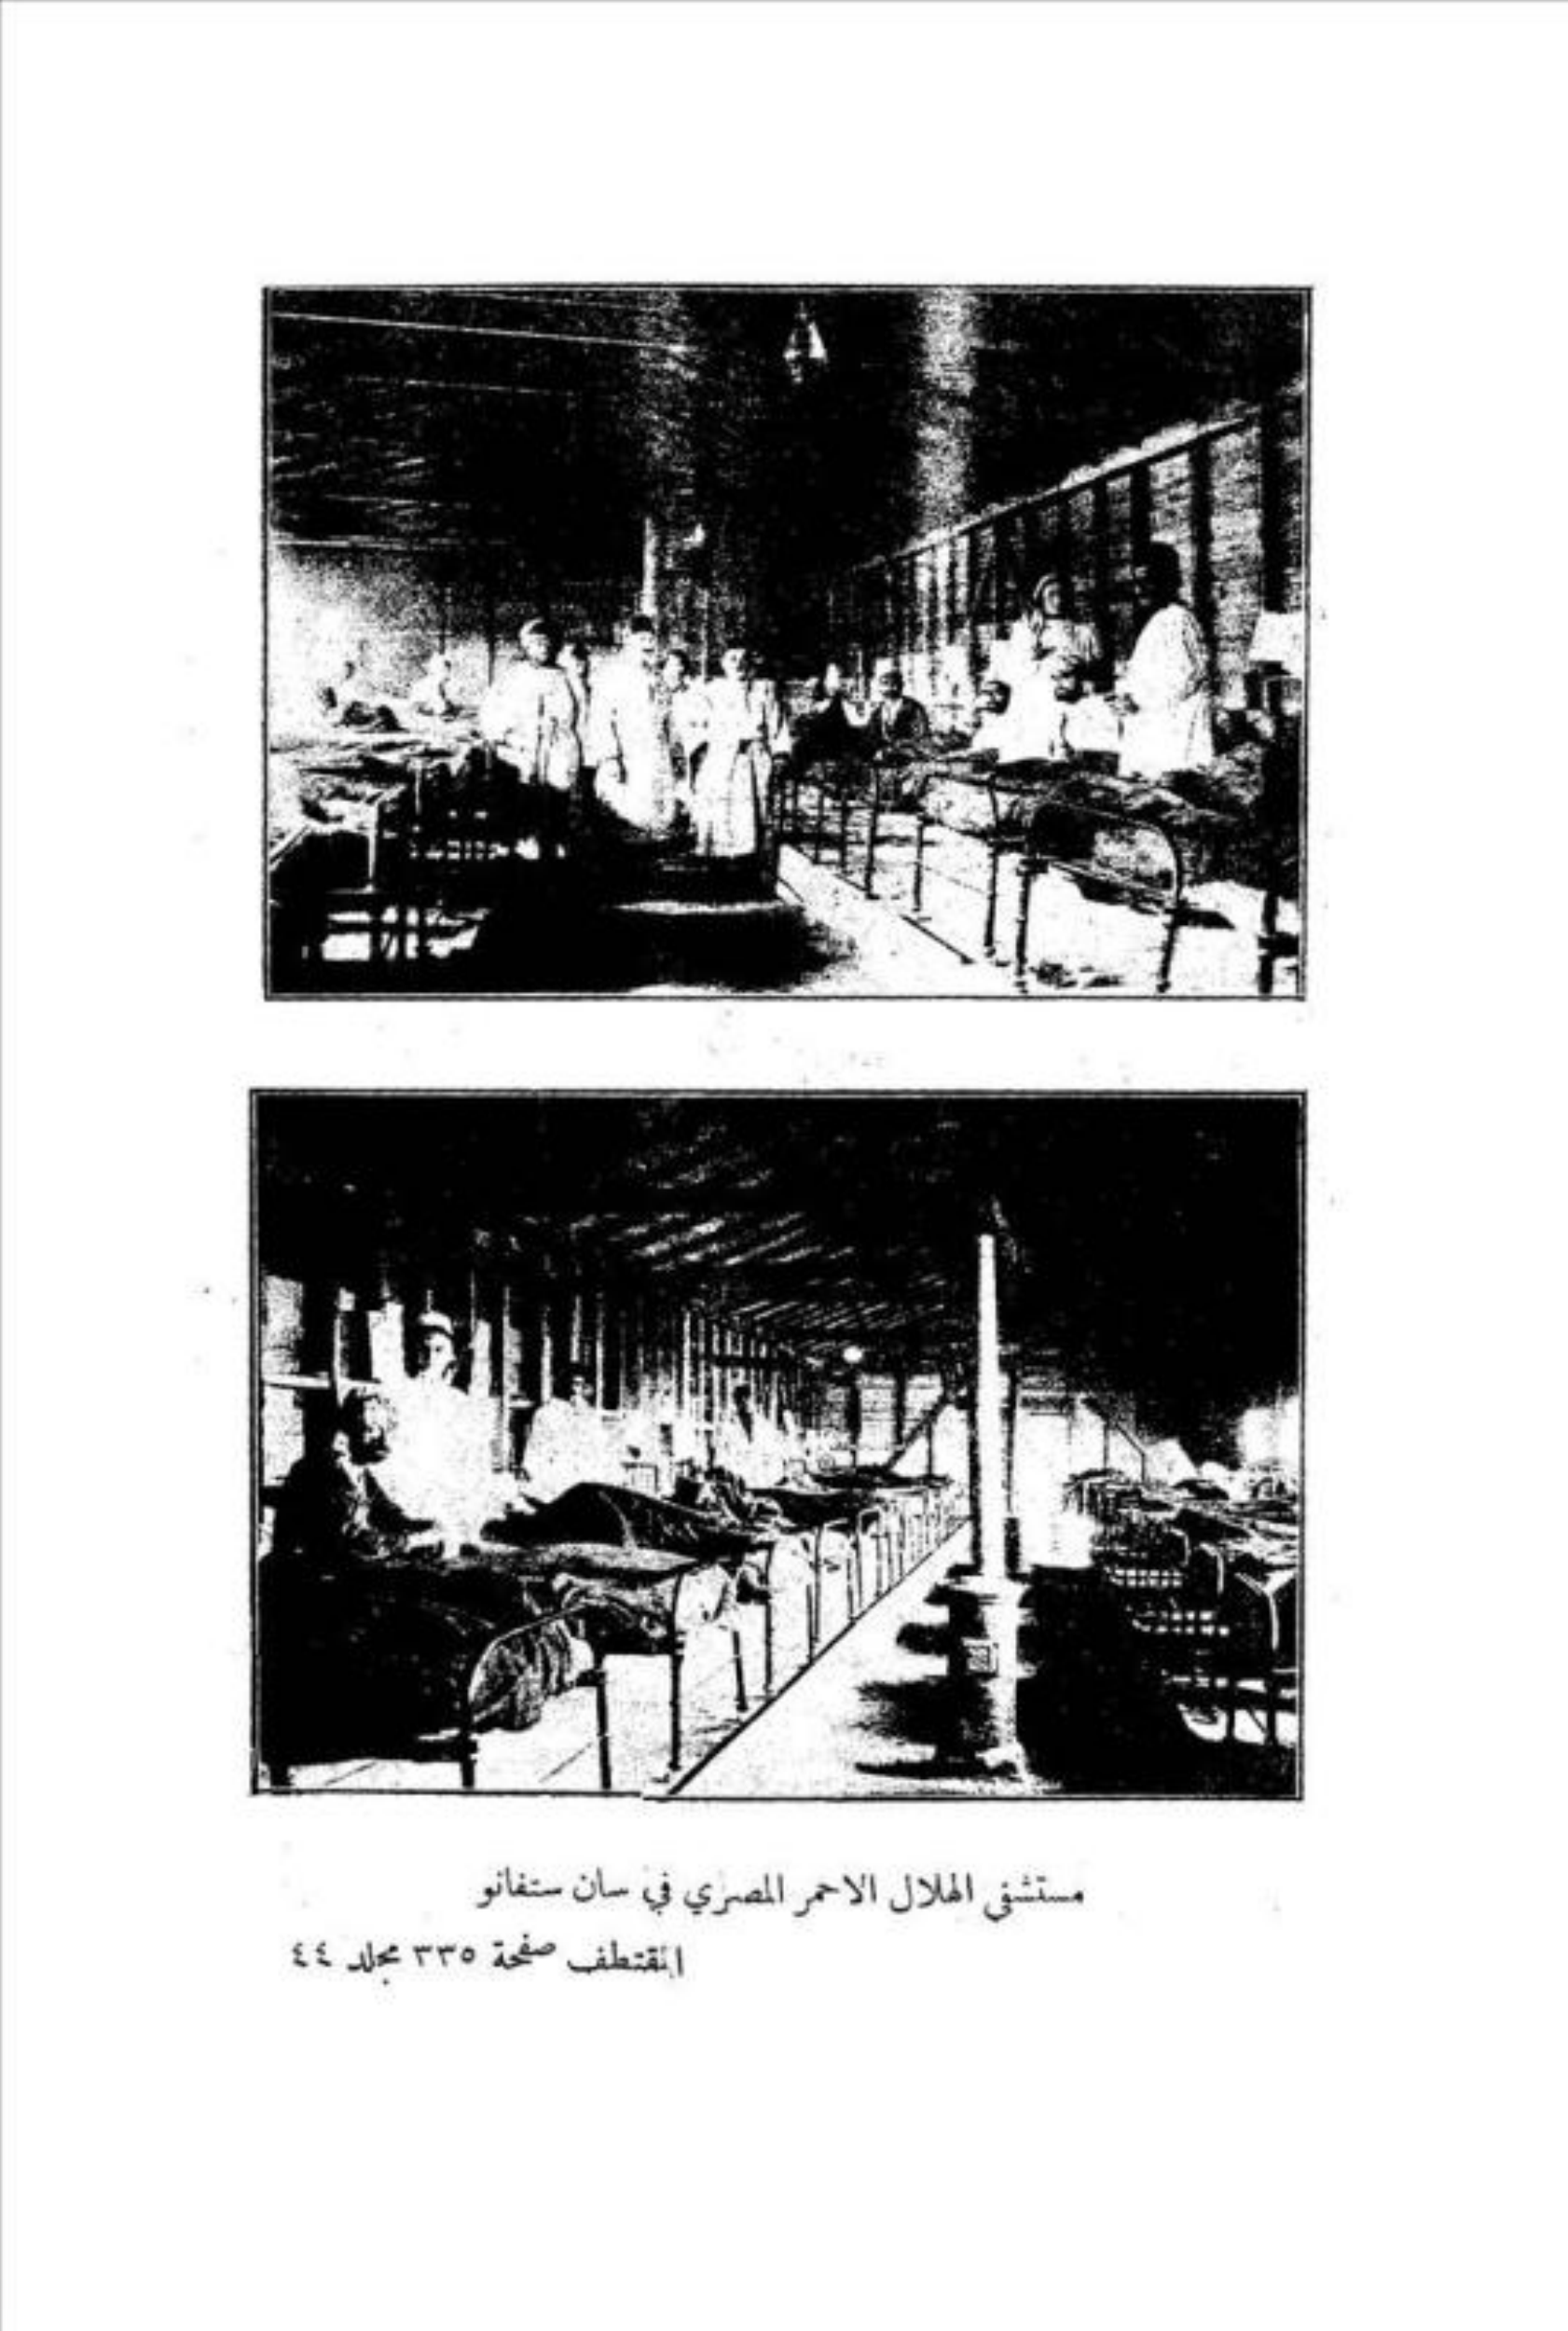 مستشفى الهلال الاحمر المصري في سان ستفانو
المقتطف صفحة ٣٣٥ مجلد ٤٤